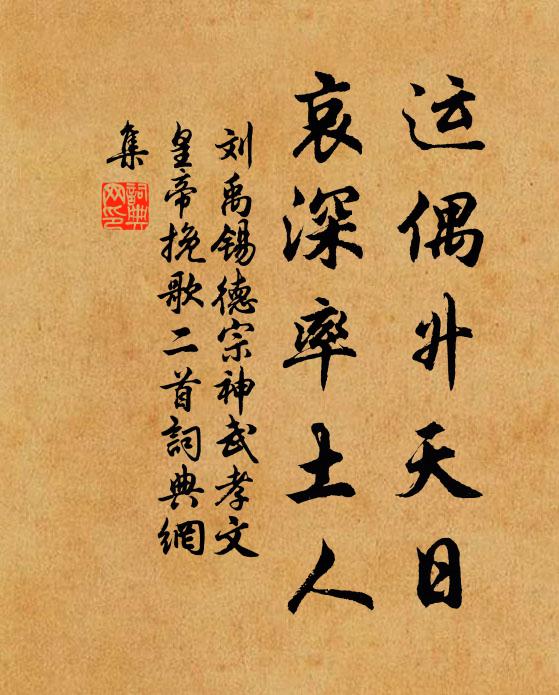 运偶升天日
哀深率土人
刘禹锡德宗神武孝文
皇帝挽歌二首詞典網
集
詞典
网印